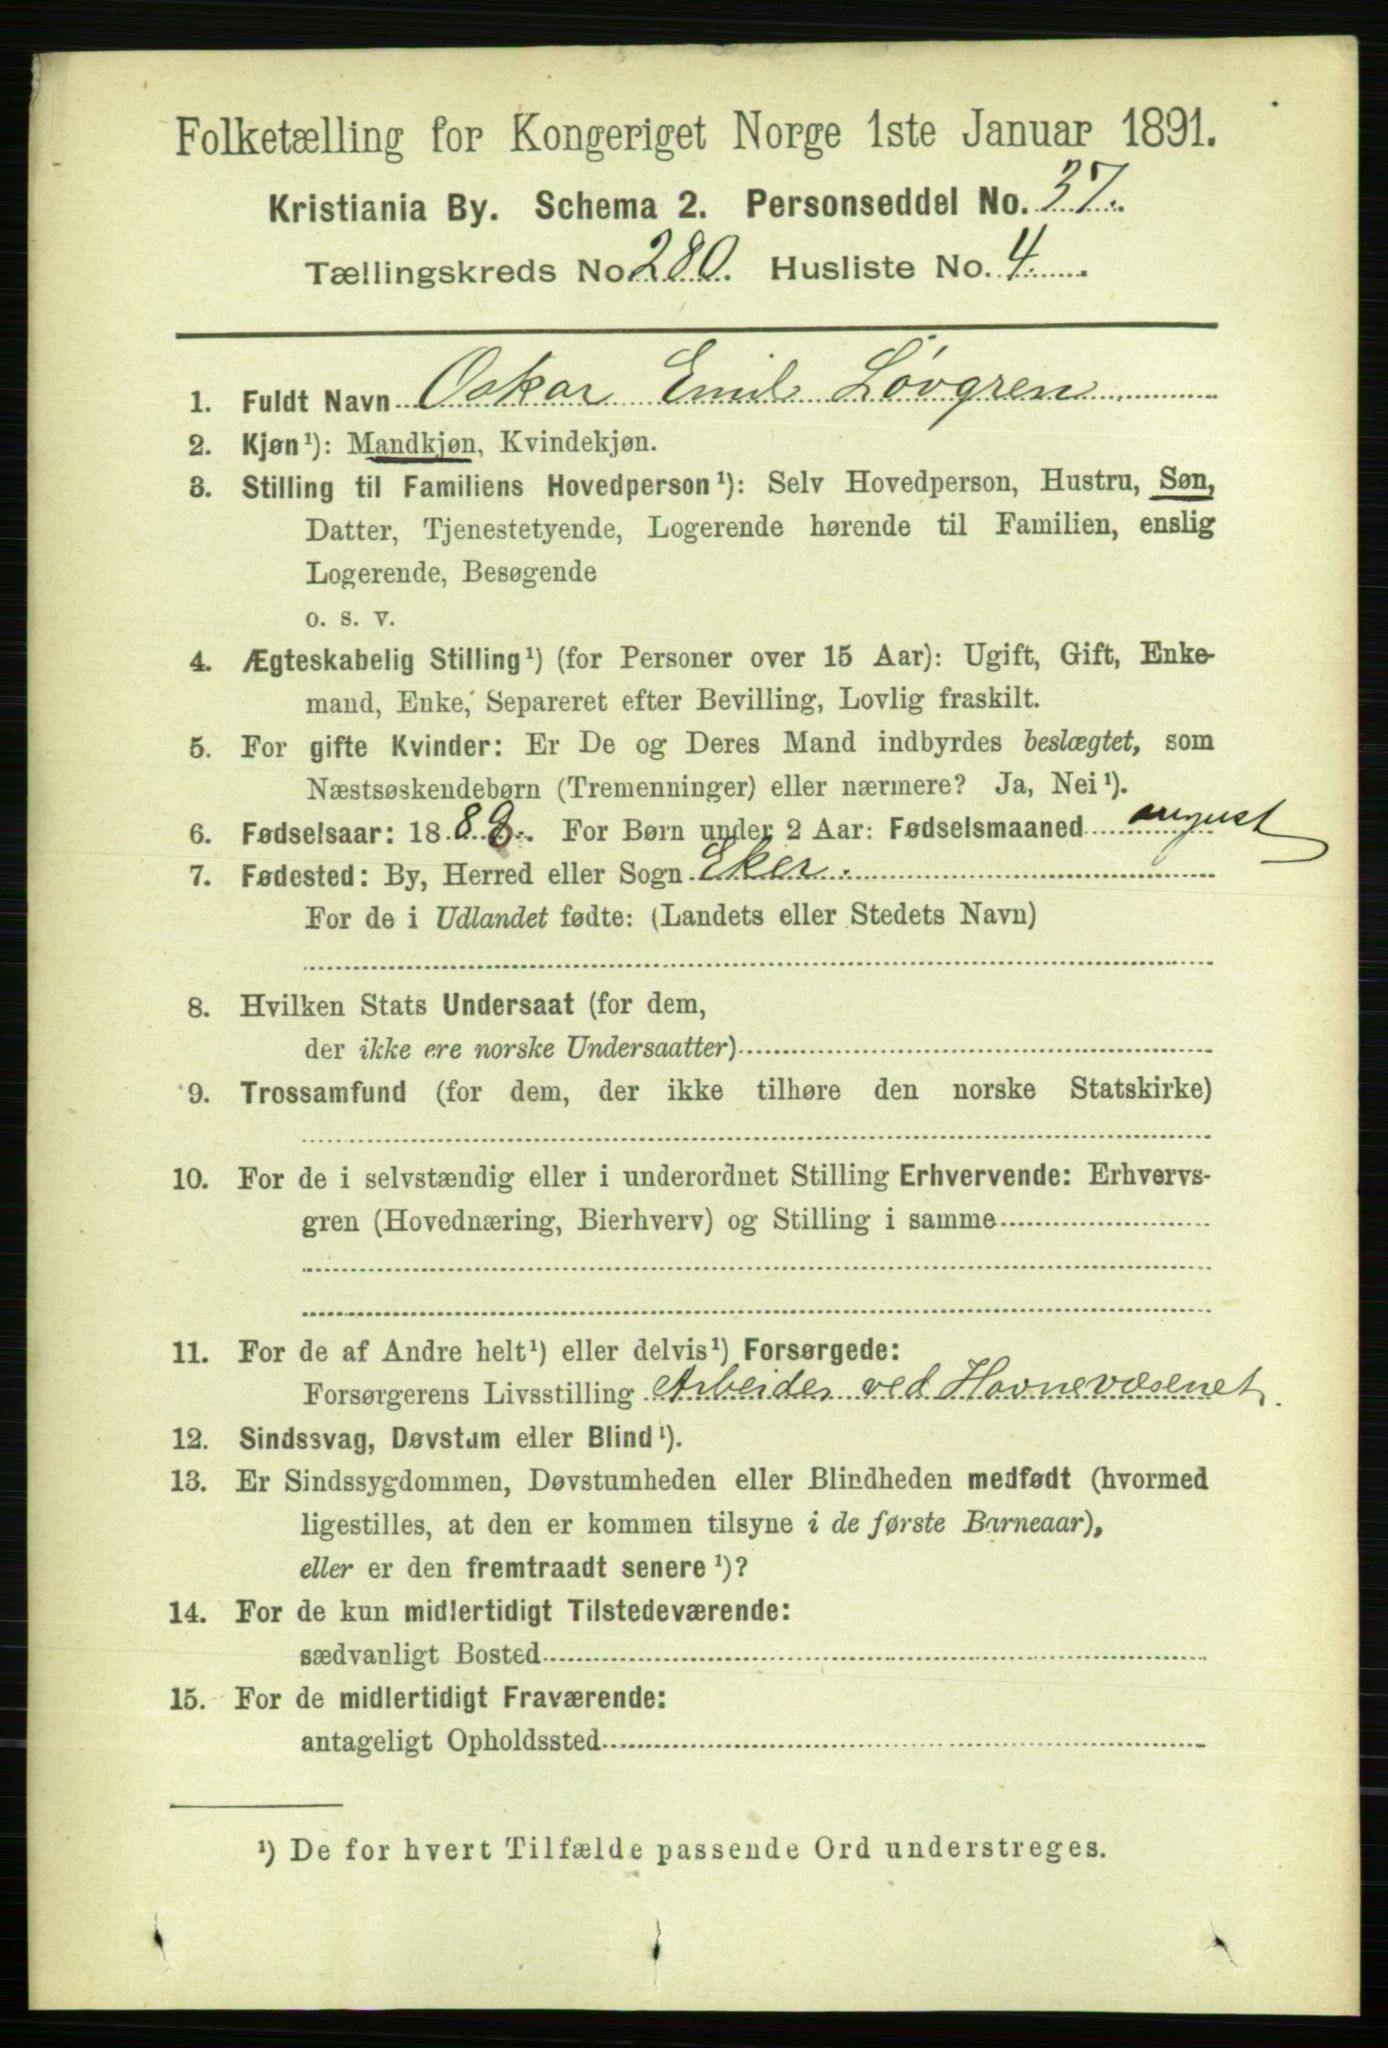 Folketælling for Kongeriget Norge 1ste Januar 1891.
Kristiania By. Schema 2. Personseddel No. 37.
Tællingskreds No 280. Husliste No. 4
1. Fuldt Navn Oskar Emil Løvgren
2. Kjøn¹): Mandkjøn, Kvindekjøn.
3. Stilling til Familiens Hovedperson¹): Selv Hovedperson, Hustru, Søn,
Datter, Tjenestetyende, Logerende hørende til Familien, enslig
Logerende, Besøgende
o. s. v.
4. Ægteskabelig Stilling¹) (for Personer over 15 Aar): Ugift, Gift, Enke-
mand, Enke, Separeret efter Bevilling, Lovlig fraskilt.
5. For gifte Kvinder: Er De og Deres Mand indbyrdes beslægtet, som
Næstsøskendebørn (Tremenninger) eller nærmere? Ja, Nei¹).
6. Fødselsaar: 18 89. For Børn under 2 Aar: Fødselsmaaned august
7. Fødested: By, Herred eller Sogn Eker.
For de i Udlandet fødte: (Landets eller Stedets Navn)
8. Hvilken Stats Undersaat (for dem,
der ikke ere norske Undersaatter)
9. Trossamfund (for dem, der ikke tilhøre den norske Statskirke)
10. For de i selvstændig eller i underordnet Stilling Erhvervende: Erhvervs-
gren (Hovednæring, Bierhverv) og Stilling i samme
11. For de af Andre helt¹) eller delvis¹) Forsørgede:
Forsørgerens Livsstilling Arbeider ved Havnevæsenet.
12. Sindssvag, Døvstum eller Blind¹).
13. Er Sindssygdommen, Døvstumheden eller Blindheden medfødt (hvormed
ligestilles, at den er kommen tilsyne i de første Barneaar),
eller er den fremtraadt senere¹)?
14. For de kun midlertidigt Tilstedeværende:
sædvanligt Bosted
15. For de midlertidigt Fraværende:
antageligt Opholdssted
¹) De for hvert Tilfælde passende Ord understreges.